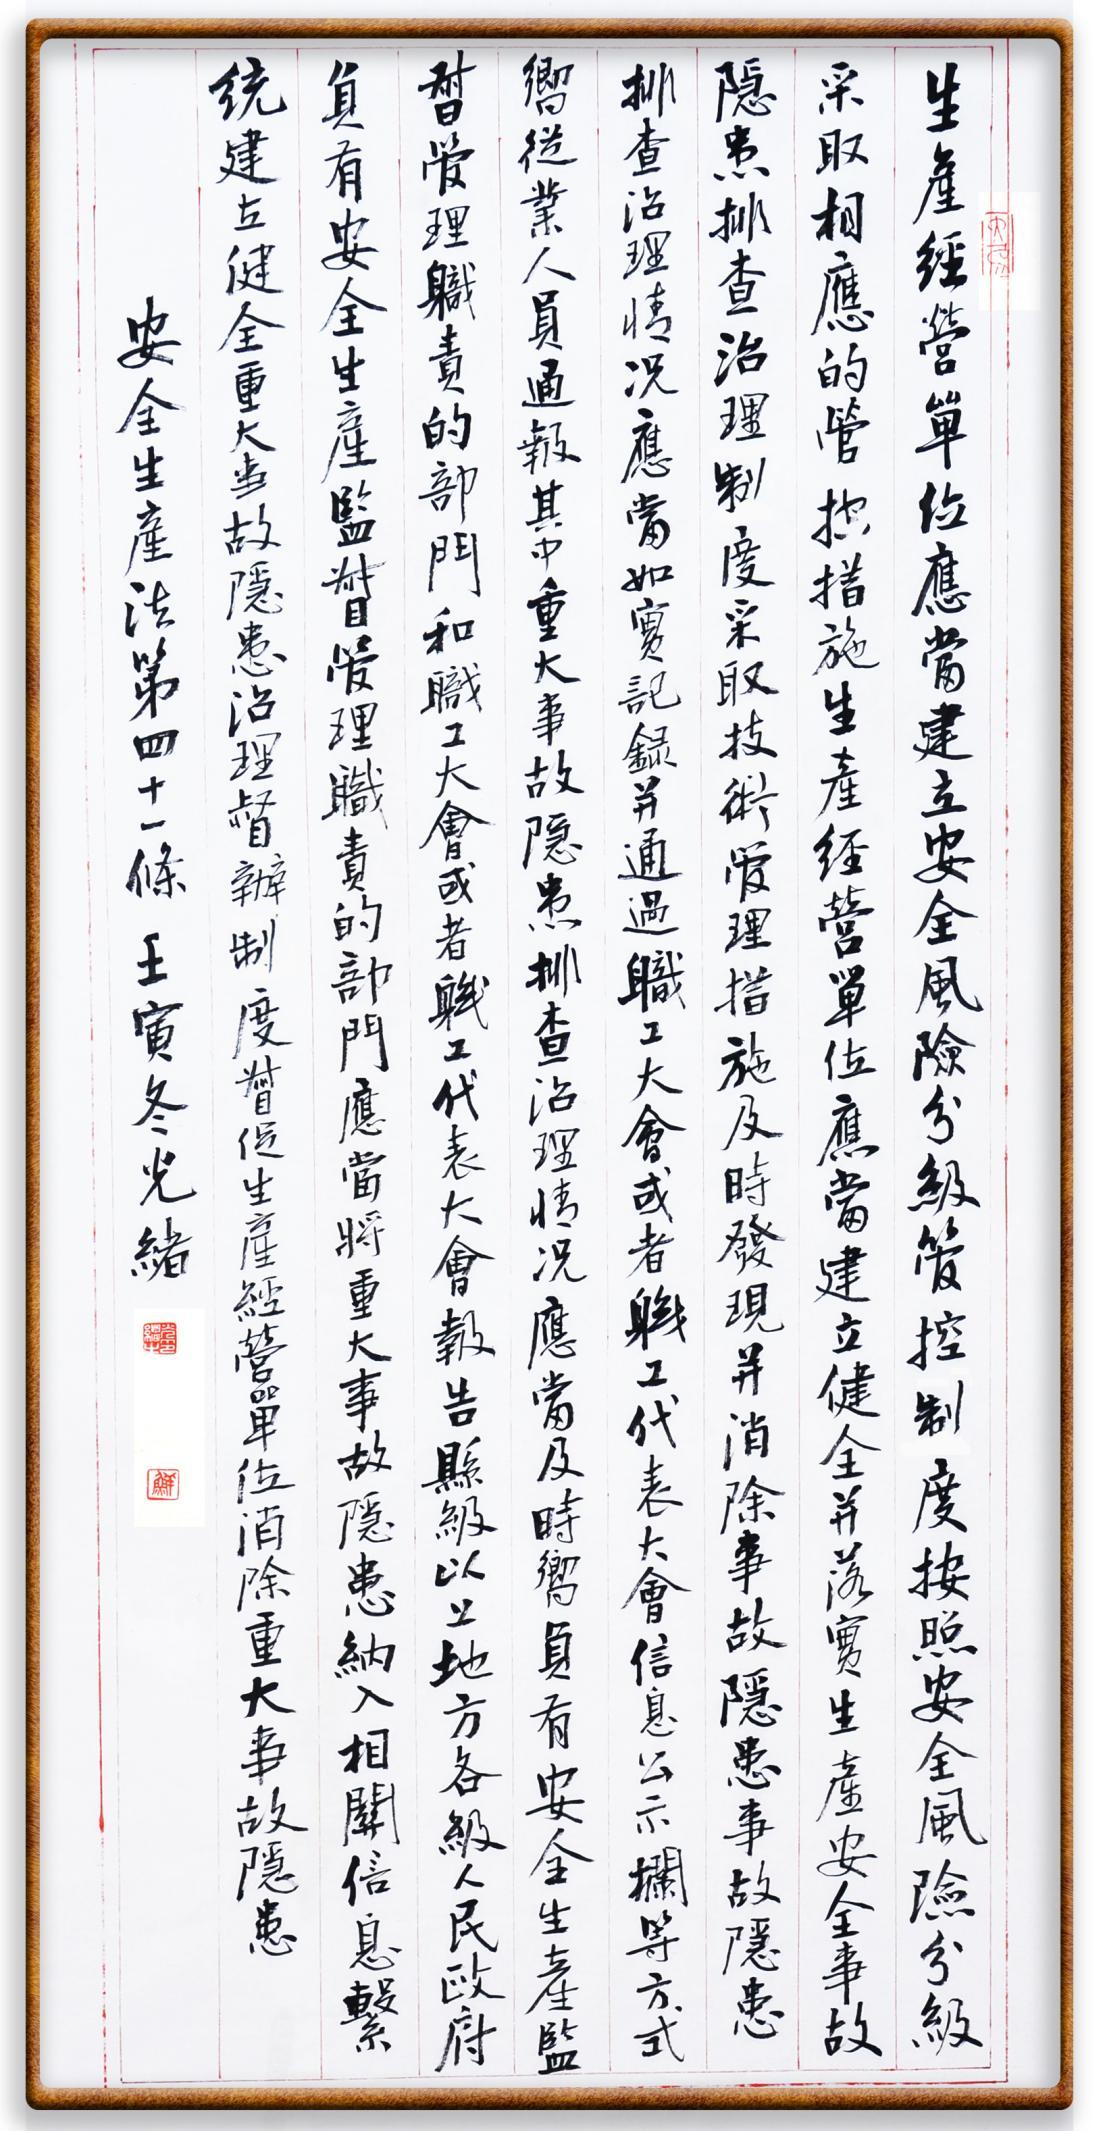 生產經營單位應當建立安全風險分級管控制度按照安全風險分級
采取相應的管控措施生產經營單位應當建立健全并落實生產安全事故
隱患排查治理制度采取技術管理措施及時發現并消除事故隱患事故隱患
排查治理情况應當如實記録并通過職工大會或者職工代表大會信息公示欄等方式
嚮從業人員通報其中重大事故隱患排查治理情况應當及時嚮負有安全生產監
督管理職責的部門和職工大會或者職工代表大會報告縣級以上地方各級人民政府
負有安全生產監督管理職責的部門應當將重大事故隱患納入相關信息繫
統建立健全重大事故隱患治理督辦制度督促生產經營單位消除重大事故隱患
安全生產法第四十一條 壬寅冬光緒